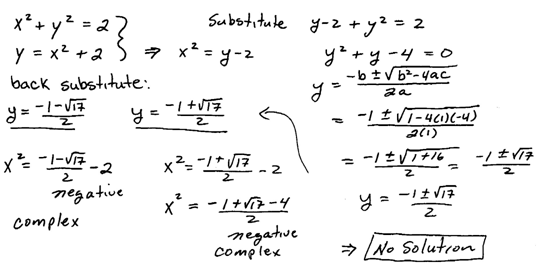 x² + y² = 2
y = x² + 2 } ⇒ x² = y - 2
Substitute y - 2 + y² = 2
y² + y - 4 = 0
y = (-b ± √(b² - 4ac)) / 2a
= (-1 ± √(1 - 4(1)(-4))) / 2(1)
= (-1 ± √(1 + 16)) / 2 = (-1 ± √17) / 2
y = (-1 ± √17) / 2
back substitute:
y = (-1 - √17) / 2
x² = (-1 - √17) / 2 - 2
negative
complex
y = (-1 + √17) / 2
x² = (-1 + √17) / 2 - 2
x² = (-1 + √17 - 4) / 2
negative
complex
⇒ No Solution